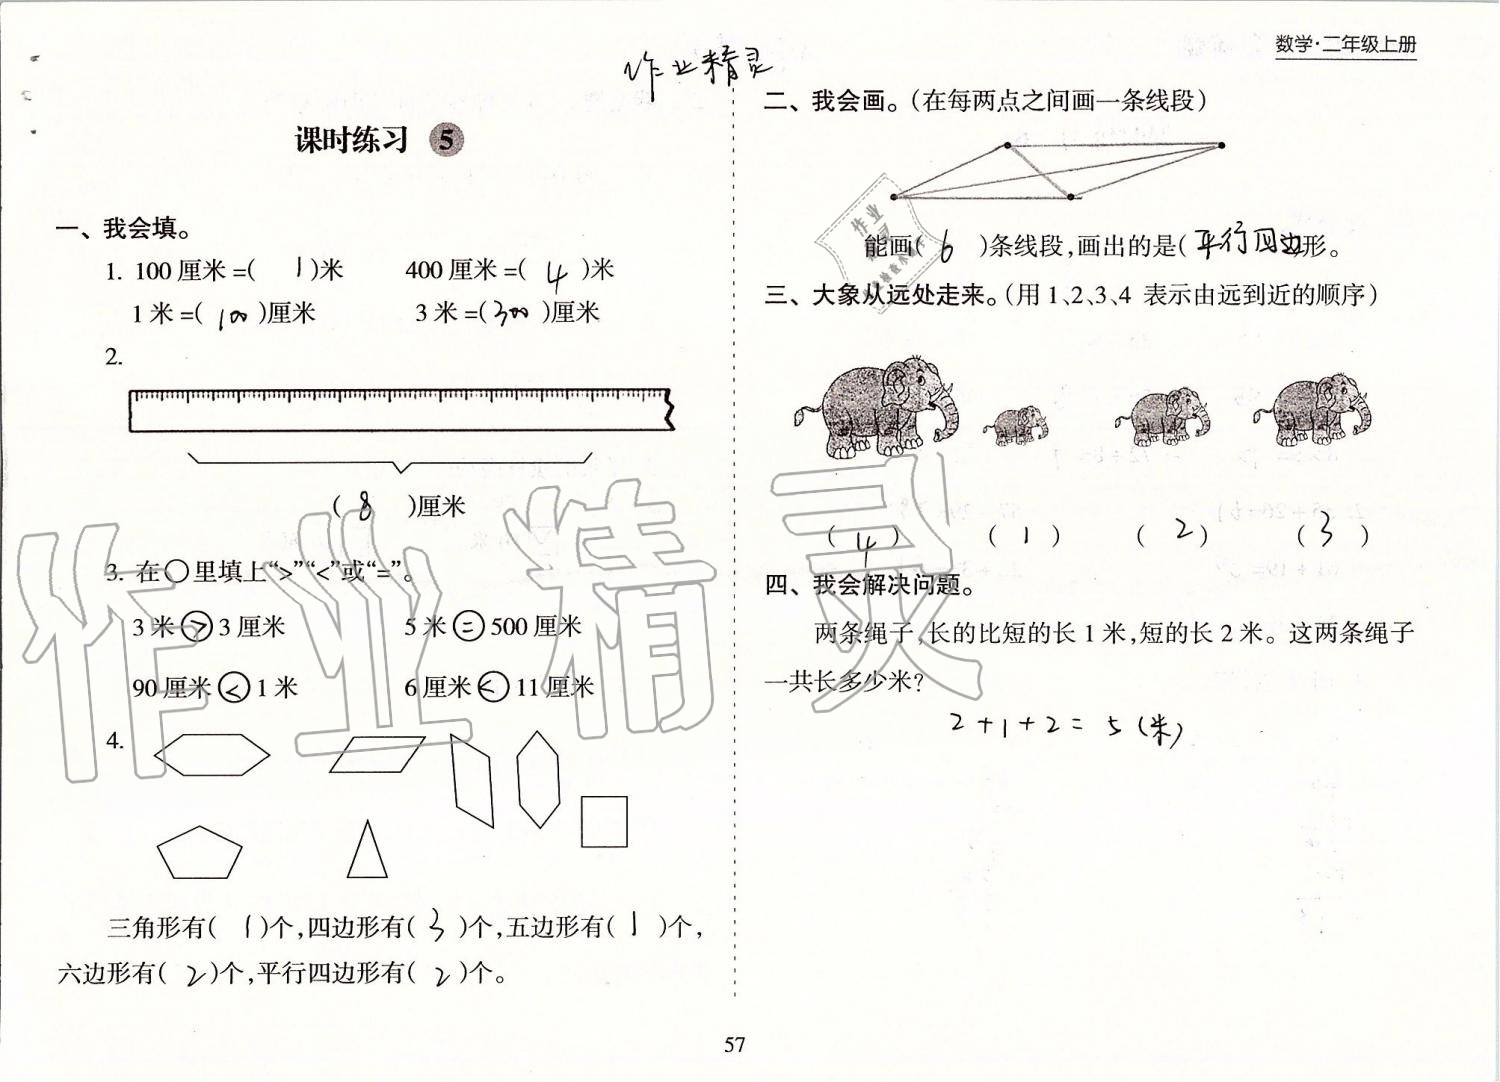 数学·二年级上册
作业精灵
课时练习 5
一、我会填。
1. 100厘米=( 1 )米 400厘米=( 4 )米
1米=( 100 )厘米 3米=( 300 )厘米
2.
( 8 )厘米
3. 在○里填上“>”“<”或“=”。
3米>3厘米 5米=500厘米
90厘米<1米 6厘米<11厘米
4.
三角形有( 1 )个,四边形有( 3 )个,五边形有( 1 )个,
六边形有( 2 )个,平行四边形有( 2 )个。
二、我会画。(在每两点之间画一条线段)
能画( 6 )条线段,画出的是( 平行四边形。
三、大象从远处走来。(用1、2、3、4 表示由远到近的顺序)
( 4 ) ( 1 ) ( 2 ) ( 3 )
四、我会解决问题。
两条绳子,长的比短的长1米,短的长2米。这两条绳子
一共长多少米?
2+1+2=5(米)
57
作业精灵